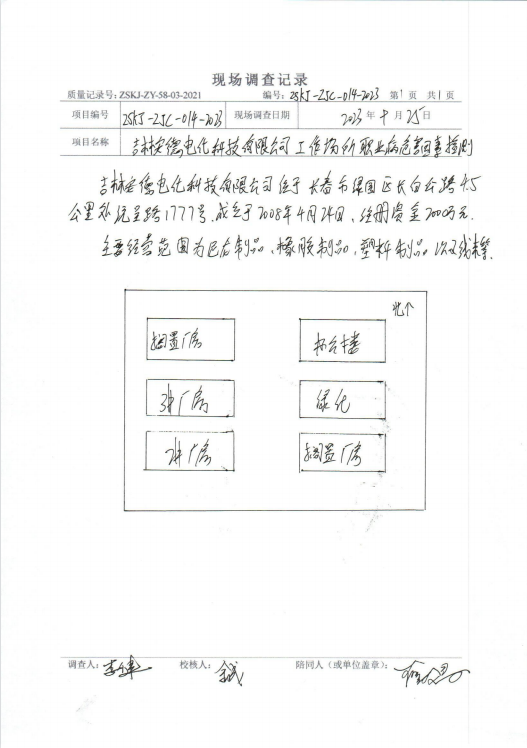 现场调查记录
质量记录号: ZSKJ-ZY-58-03-2021 编号: ZSKJ-ZJC-014-2023 第1页 共1页
项目编号 ZSKJ-ZJC-014-2023 现场调查日期 2023年 月25日
项目名称 吉林安德电化科技有限公司工作场所职业病危害因素检测
吉林安德电化科技有限公司位于长春市绿园区长白公路4.5
公里处远呈路1777号.成立于2008年4月24日、注册资金2000万元.
主要经营范围为 制品、橡胶制品、塑料制品、 线束等.
北个
闲置厂房
办公楼
3#厂房
绿化
2#厂房
闲置厂房
调查人: 校核人: 陪同人(或单位盖章):